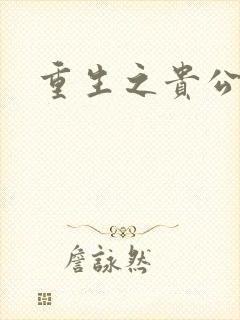 重生之貴公
詹詠然